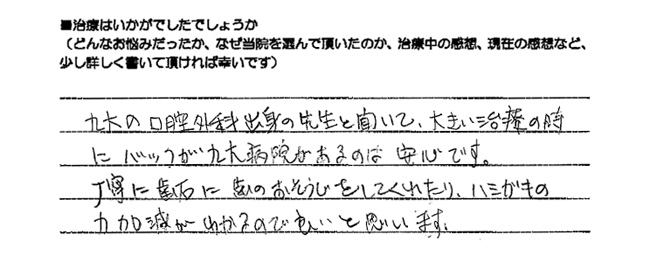 ■治療はいかがでしたでしょうか
(どんなお悩みだったか、なぜ当院を選んで頂いたのか、治療中の感想、現在の感想など、
少し詳しく書いて頂ければ幸いです)
九大の口腔外科出身の先生と聞いて、大きい治療の時
にバックが九大病院があるのは安心です。
丁寧に歯石に歯のおそうじをしてくれたり、ハミガキの
力加減がわかるので良いと思います。